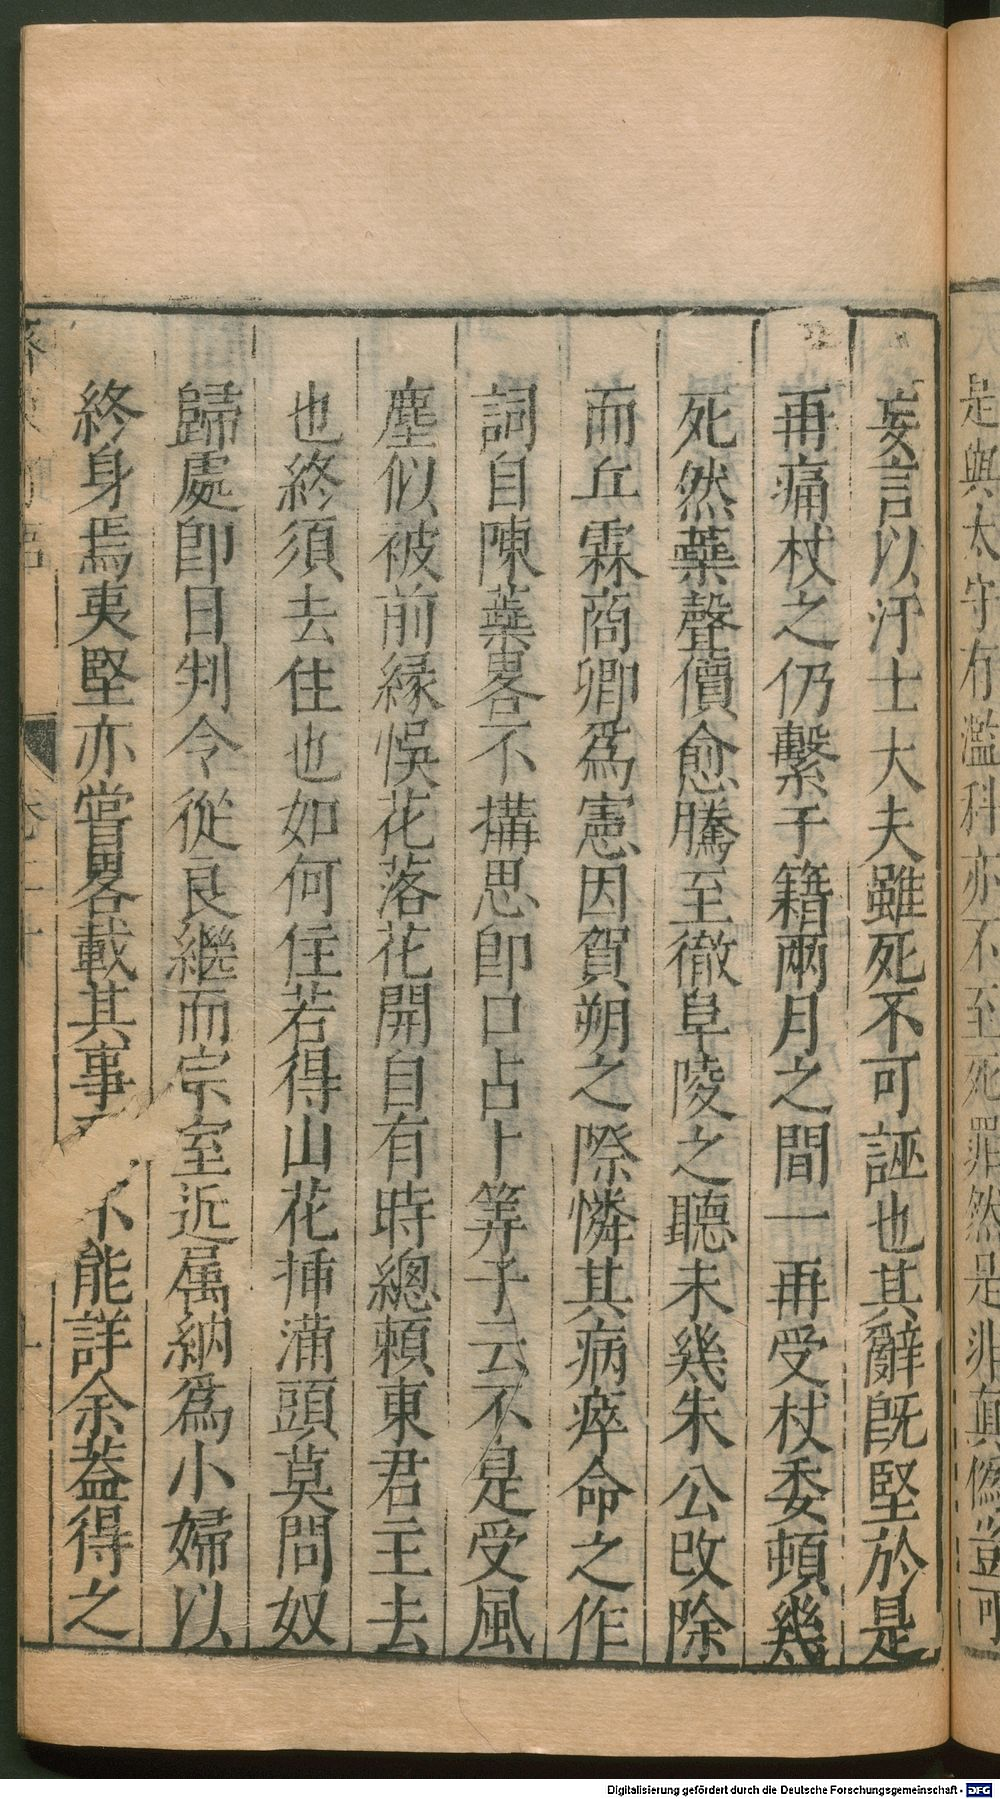 是與太守有濫科亦不至死罪然是非真偽豈可
妄言以汙士大夫雖死不可誣也其辭旣堅於是
再痛杖之仍繫于籍兩月之間一再受杖委頓幾
死然蘂聲價愈騰至徹阜陵之聽未幾朱公改除
而丘霖商卿爲憲因賀朔之際憐其病瘁命之作
詞自陳蘂畧不搆思卽口占卜筭子云不是受風
塵似被前緣悞花落花開自有時總賴東君主去
也終須去住也如何住若得山花揷滿頭莫問奴
歸處卽日判令從良繼而宗室近属納爲小婦以
終身焉夷堅亦嘗畧載其事不能詳余葢得之
Digitalisierung gefördert durch die Deutsche Forschungsgemeinschaft - DFG